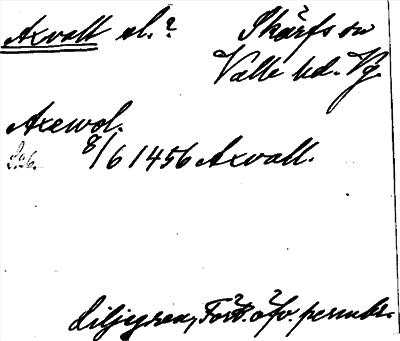 Axvall sl.? Skärfs sn
Valle hd. Vg
Axewol.
8/6 1456 Axvall.
Liljegren, Fört. öfv. permbr.